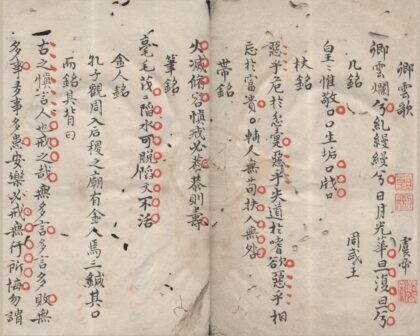 卿雲歌 虞帝
卿雲爛兮糺縵縵兮日月光華旦復旦兮
几銘 周武王
皇皇惟敬口口生垢口戕口
杖銘
惡乎危於忿疐惡乎失道於嗜欲惡乎相
忘於富貴
帶銘
火滅修容慎戒必恭恭則壽
筆銘
毫毛茂陷水可脫陷文不活
金人銘
孔子觀周入后稷之廟有金人焉三緘其口
而銘其背曰
古之慎言人也戒之哉無多言多言多敗無
多事多事多患安樂必戒無行所悔勿謂